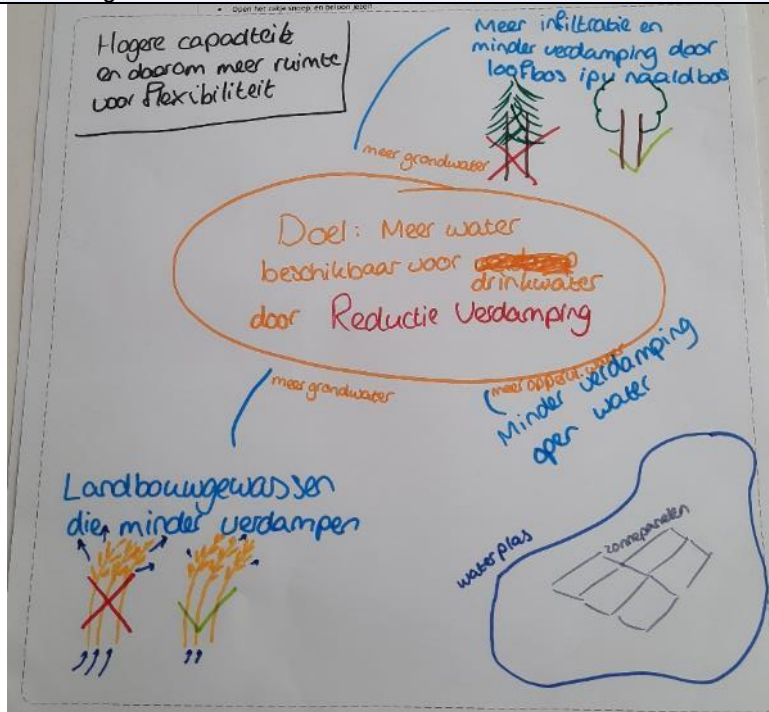 Open het zakje snoep, en beloon jezelf!
Hogere capaciteit
en daarom meer ruimte
voor flexibiliteit
Meer infiltratie en
minder verdamping door
loofbos ipv naaldbos
meer grondwater
Doel: Meer water
beschikbaar voor
drinkwater
door Reductie Verdamping
meer grondwater
meer opperv. water
Minder verdamping
open water
Landbouwgewassen
die minder verdampen
waterplas
zonnepanelen